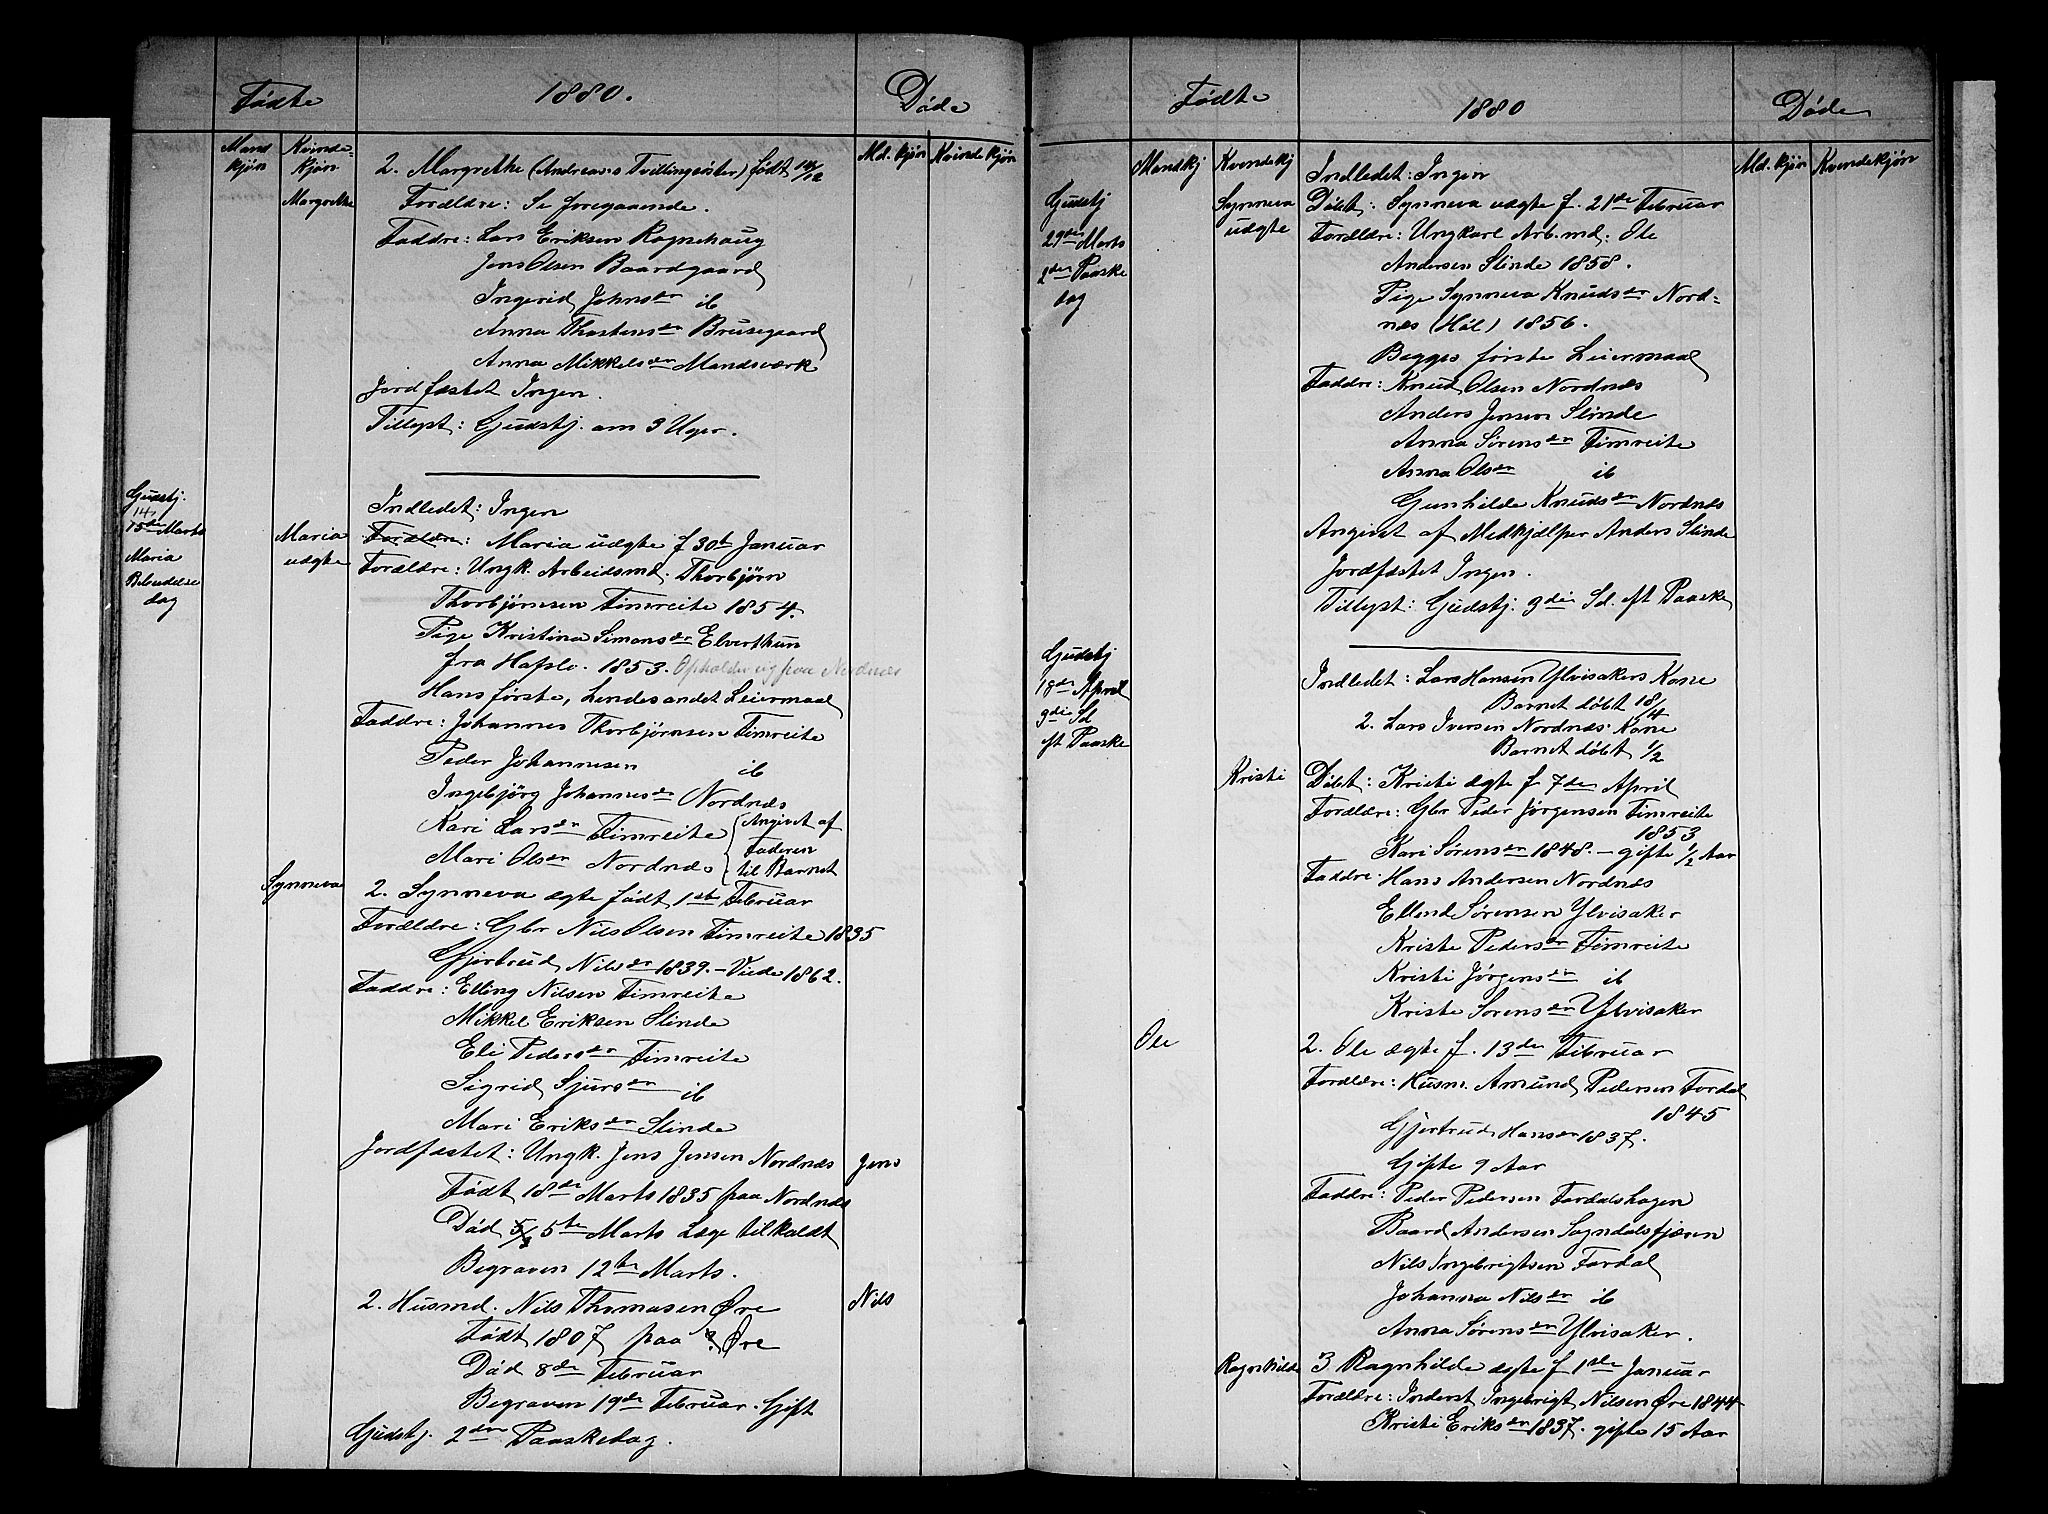 Fødte
1880.
Døde
Mand
kjøn
Kvinde-
kjøn
Md. kjøn
Kvindekjøn
Margrethe
2. Margrethe (Andreas's Tvillingsøster) født
Forældre: Se foregaaende.
Faddre: Lars Eriksen Ragnehaug
Jens Olsen Baardgaard
Ingerid Johnsdr ib
Anna Thostensdr Brusegaard
Anna Mikkelsdr Mandsværk
Jordfæstet Ingen.
Tillyst: Gudstj. om 3 Uger.
Gudstj.
14.
15de Marts
Maria
Bebudelse
dag
Indledet: Ingen
Maria
uægte
Forældre: Maria uægte f 30te Januar
Forældre: Ungk. Arbeidsmd. Thorbjørn
Thorbjørnsen Timreite 1854.
Pige Kristina Simonsdr Elverthun
fra Hafslo. 1853. Opholder sig paa Nordnæs
Hans første, hendes andet Leiermaal
Faddre: Johannes Thorbjørnsen Timreite
Peder Johannesen ib
Ingebjørg Johannesdr Nordnæs
Kari Larsdr Timreite
Mari Olsdr Nordnæs
Angivet af
Faderen
til Barnet
Synneva
2. Synneva ægte født 1ste Februar
Forældre: Gbr Nils Olsen Timreite 1835
Gjertrud Nilsdr 1839. - Viede 1862.
Faddre: Elling Nilsen Timreite
Mikkel Eriksen Slinde
Eli Pedersdr Timreite
Sigrid Sjursdr ib
Mari Eriksdr Slinde
Jordfæstet: Ungk. Jens Jensen Nordnæs
Jens
Født 18de Marts 1835 paa Nordnæs
Død 5/3 5te Marts Læge tilkaldt
Begraven 12te Marts.
2. Husmd. Nils Thomasen Øre
Nils
Født 1807 paa ? Øre
Død 8de Februar
Begraven 19de Februar. Gift
Gudstj. 2den Paaskedag.
Fødte
1880
Døde
Mandkj
Kvindekj
Md. kjøn
Kvindekjøn
Gudstj
29de Marts
2den Paaske
dag
Synneva
uægte
Indledet: Ingen
Døbt: Synneva uægte f. 21de Februar
Forældre: Ungkarl Arb.md: Ole
Andersen Slinde 1858.
Pige Synneva Knudsdr Nord=
næs (Høl) 1856.
Begges første Leiermaal
Faddre: Knud Olsen Nordnæs
Anders Jensen Slinde
Anna Sørensdr Timreite
Anna Olsdr ib
Gunhilde Knudsdr Nordnæs
Angivet af Medhjælper Anders Slinde
Jordfæstet Ingen.
Tillyst: Gudstj. 3die Sd. eft Paaske
Gudstj
18de April
3die Sd
eft Paaske
Indledet: Lars Hansen Ylvisakers Kone
Barnet døbt 18/4
2. Lars Iversen Nordnæs Kone
Barnet døbt 1/2
Kristi
Døbt: Kristi ægte f 7de April
Forældre: Gbr Peder Jørgensen Timreite
1853
Kari Sørensdr 1848. - gifte 1/2 Aar
Faddre: Hans Andersen Nordnæs
Ellend Sørensen Ylvisaker
Kristi Pedersdr Timreite
Kristi Jørgensdr ib
Kristi Sørensdr Ylvisaker
Ole
2. Ole ægte f. 13de Februar
Forældre: Husm. Amund Pedersen Fardal
1845
Gjertrud Hansdr 1837.
Gifte 9 Aar
Faddre: Peder Pedersen Fardalshagen
Baard Andersen Sogndalsfjæren
Nils Ingebrigtsen Fardal
Johanna Nilsdr ib
Anna Sørensdr Ylvisaker.
Ragnhilde
3 Ragnhilde ægte f 1ste Januar
Forældre: Inderst Ingebrigt Nilsen Øre 1844
Kristi Eriksdr 1837. gifte 15 Aar